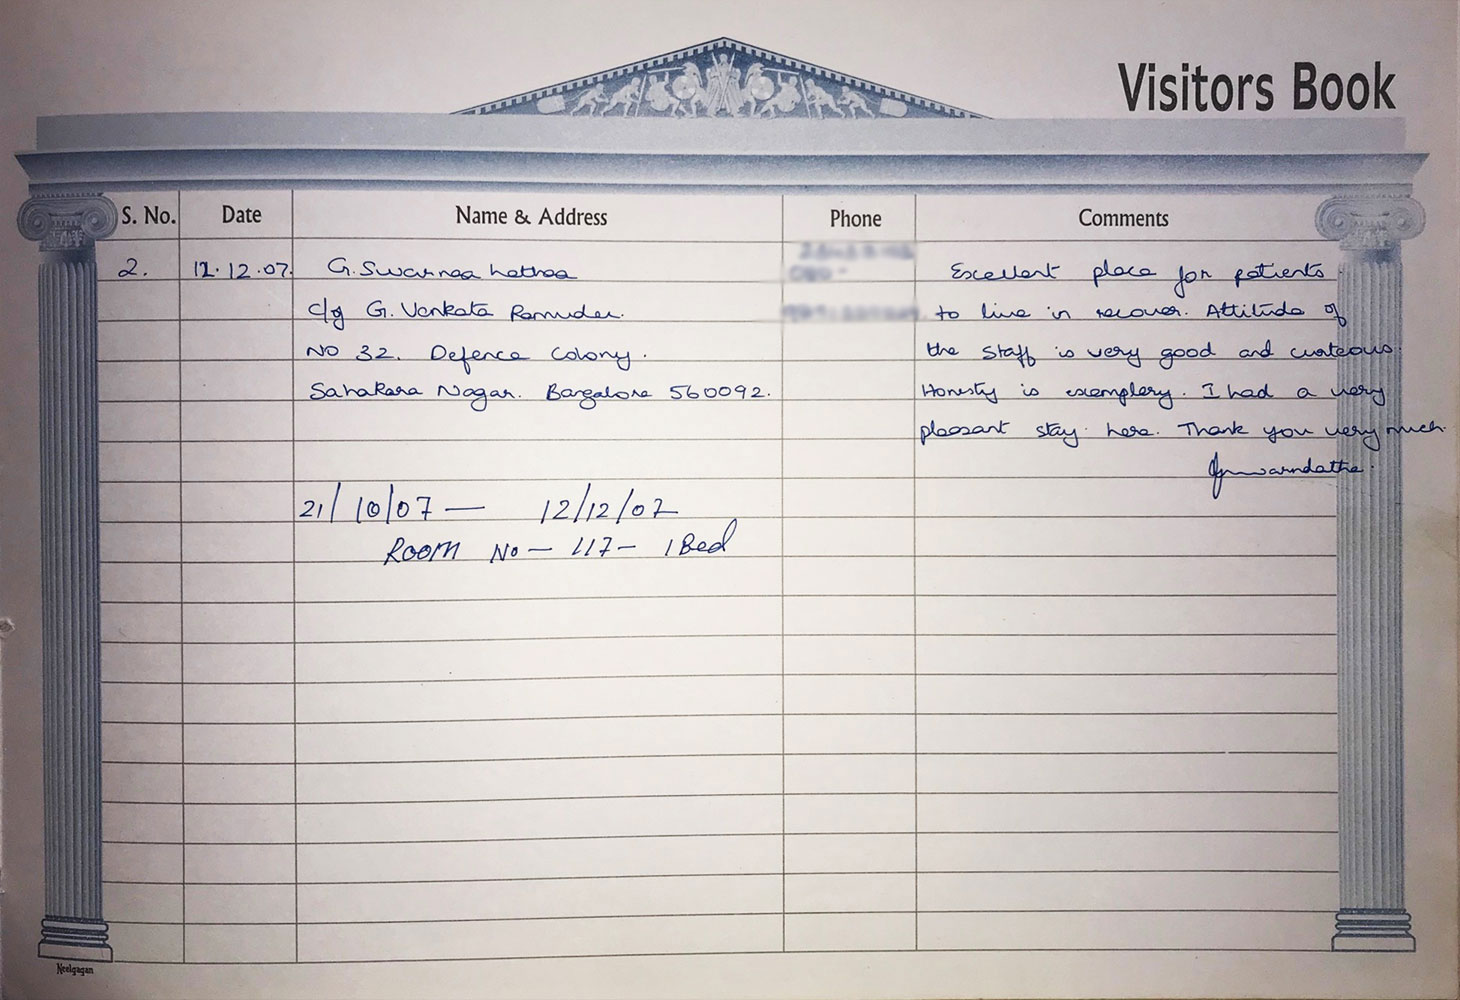 Visitors Book
S. No. Date Name & Address Phone Comments
2. 12.12.07. G. Swarnaa Lathaa
c/o G. Venkata Ramudu.
No 32. Defence Colony.
Sahakara Nagar. Bangalore 560092.
Excellent place for patients
to live in recover. Attitude of
the Staff is very good and curteous.
Honesty is exemplery. I had a very
pleasant stay here. Thank you very much.
21/10/07 — 12/12/07
Room No — 117 — 1 Bed
Neelgagan